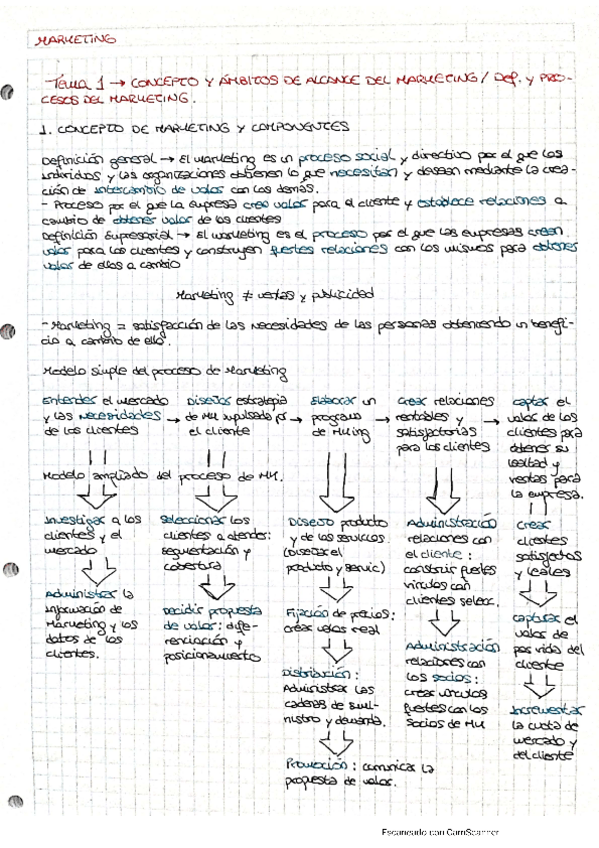 MARKETING
Tema 1 → CONCEPTO Y ÁMBITOS DE ALCANCE DEL MARKETING / Def. y PRO-
CESOS DEL MARKETING.
1. CONCEPTO DE MARKETING Y COMPONENTES
Definición general → El Marketing es un proceso social y directivo por el que los
individuos y las organizaciones obtienen lo que necesitan y desean mediante la crea-
ción de intercambio de valor con los demás.
- Proceso por el que la empresa crea valor para el cliente y establece relaciones a
cambio de obtener valor de los clientes
Definición Empresarial → El Marketing es el proceso por el que las empresas crean
valor para los clientes y construyen fuertes relaciones con los mismos para obtener
valor de ellos a cambio
Marketing ≠ ventas y publicidad
- Marketing = satisfacción de las necesidades de las personas obteniendo un benefi-
cio a cambio de ello.
Modelo simple del proceso de Marketing
Entender el mercado
y las necesidades
de los clientes
→ Diseñar estrategia
de MK impulsada por
el cliente
→ Elaborar un
programa
de MKing
→ Crear relaciones
rentables y
satisfactorias
para los clientes
→ captar el
valor de los
clientes para
obtener su
lealtad y
ventas para
la empresa.
Modelo ampliado del proceso de MK.
Investigar a los
clientes y el
mercado
Administrar la
información de
Marketing y los
datos de los
clientes.
Seleccionar los
clientes a atender:
segmentación y
cobertura
Decidir propuesta
de valor: dife-
renciación y
posicionamiento
Diseño producto
y de los servicios.
(Diseñar el
producto y servic)
Fijación de precios:
crear valor real
Distribución:
Administrar las
cadenas de sumi-
nistro y demanda.
Promoción: comunicar la
propuesta de valor.
Administración
relaciones con
el cliente:
construir fuertes
vínculos con
clientes selecc.
Administración
relaciones con
los socios:
crear vínculos
fuertes con los
socios de MK
Crear
clientes
satisfechos
y leales
Capturar el
valor de
por vida del
cliente
Incrementar
la cuota de
mercado y
del cliente
Escaneado con CamScanner